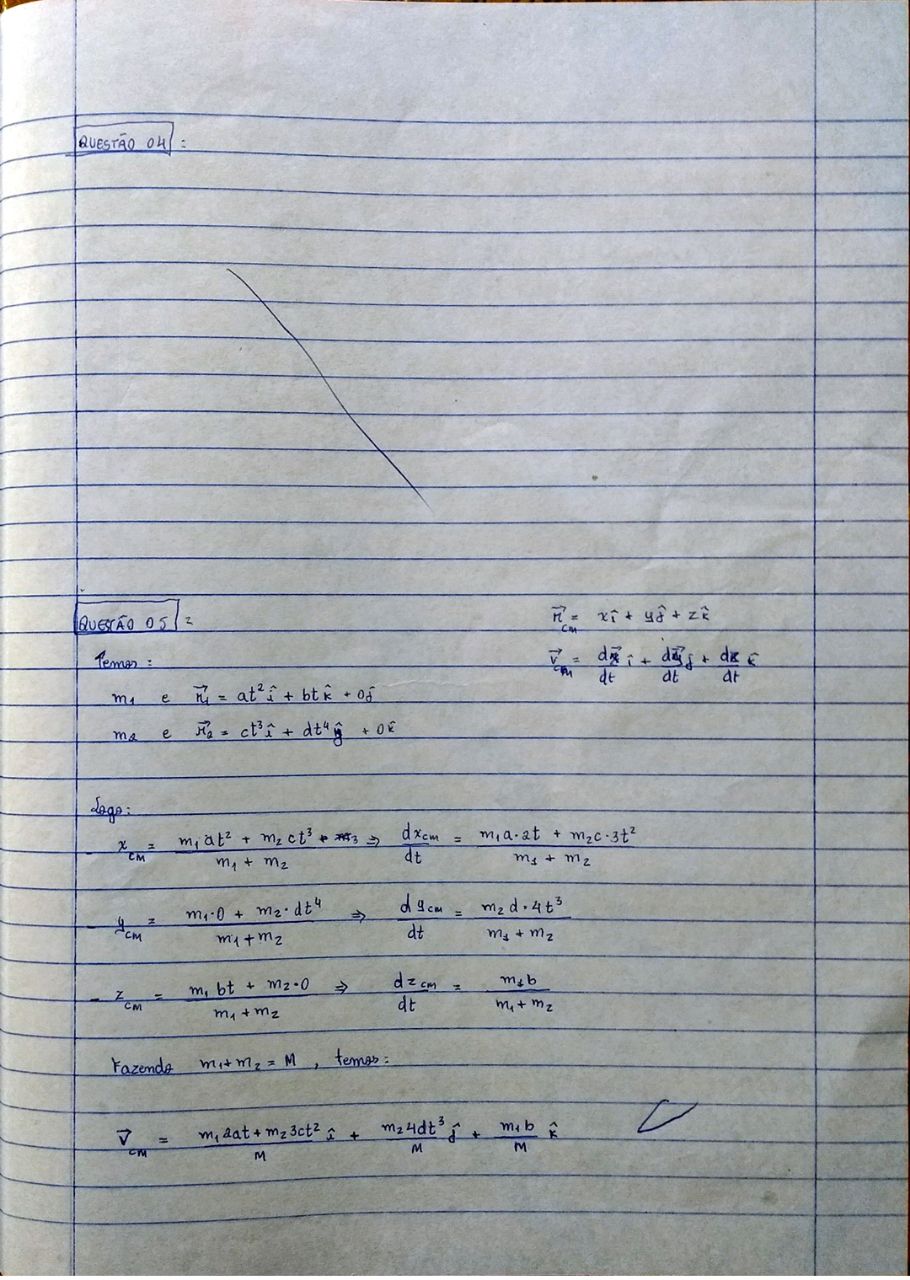 QUESTÃO 04 :
QUESTÃO 05 :
r⃗_CM = xî + yĵ + zk̂
Temos :
v⃗_CM = dx/dt î + dy/dt ĵ + dz/dt k̂
m₁ e r⃗₁ = at² î + bt k̂ + 0ĵ
m₂ e r⃗₂ = ct³ î + dt⁴ ĵ + 0k̂
Logo:
- x_CM = (m₁at² + m₂ct³)/(m₁ + m₂) ⇒ dx_CM/dt = (m₁a·2t + m₂c·3t²)/(m₁ + m₂)
- y_CM = (m₁·0 + m₂·dt⁴)/(m₁+m₂) ⇒ dy_CM/dt = (m₂d·4t³)/(m₁ + m₂)
- z_CM = (m₁bt + m₂·0)/(m₁+m₂) ⇒ dz_CM/dt = (m₁b)/(m₁+m₂)
Fazendo m₁+m₂ = M , temos:
v⃗_CM = (m₁2at + m₂3ct²)/M î + (m₂4dt³)/M ĵ + (m₁b)/M k̂